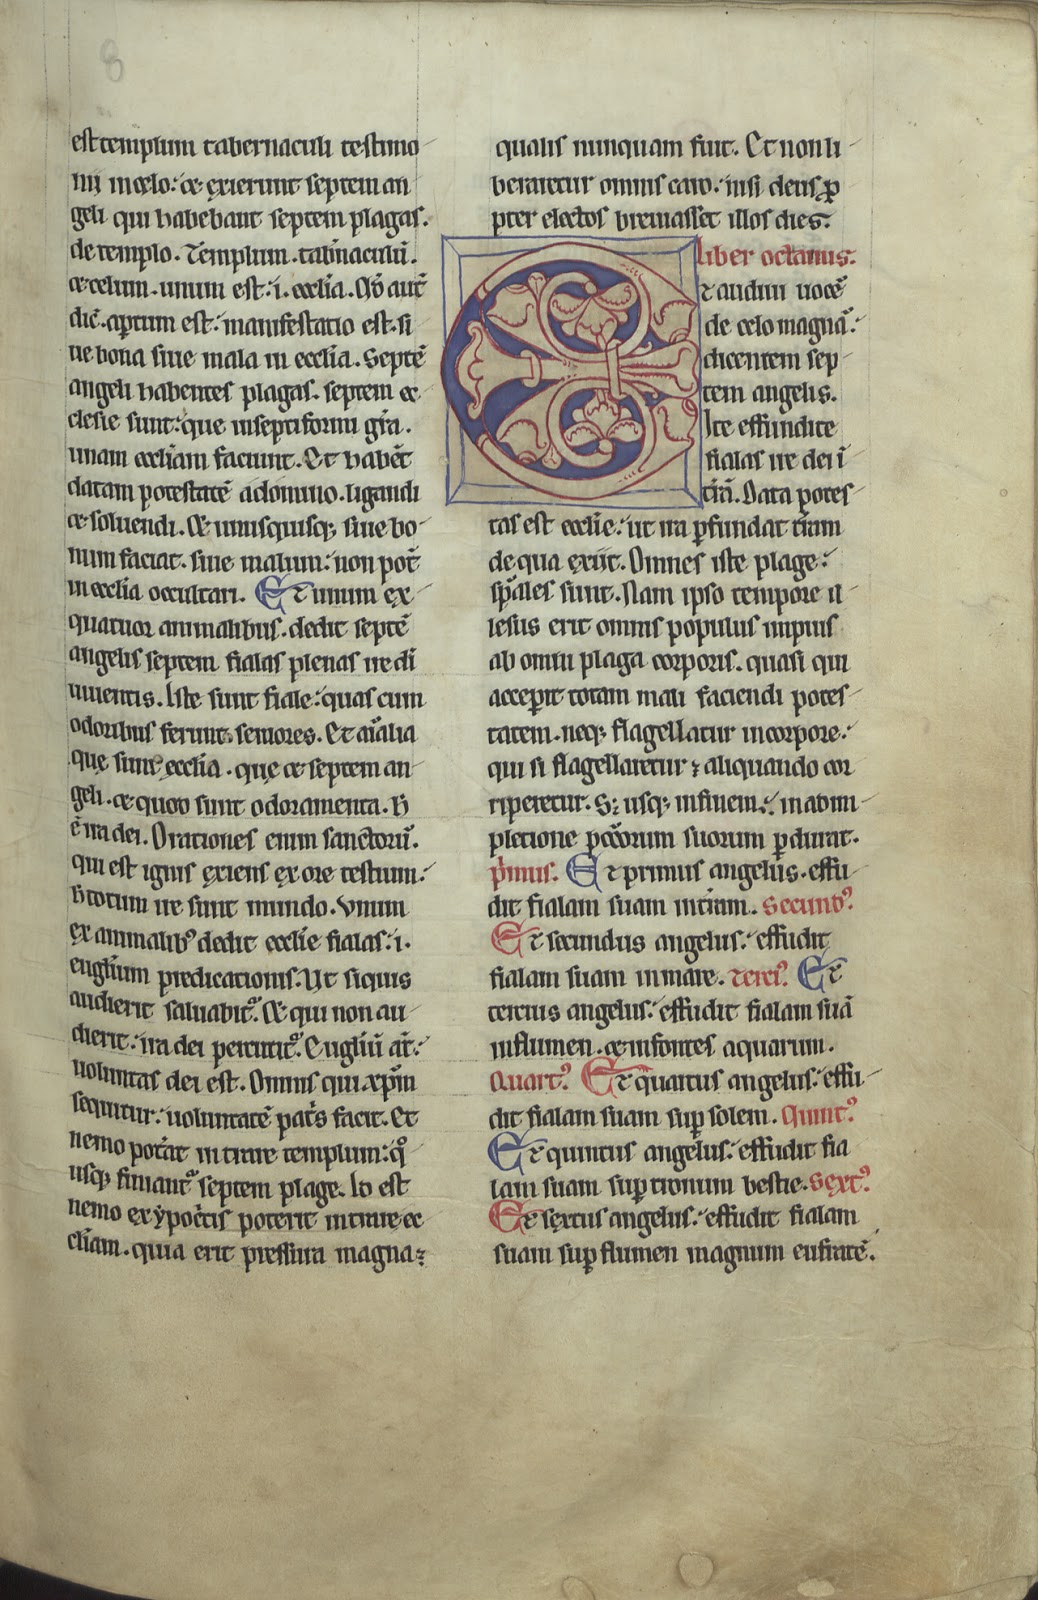 8
est templum tabernaculi testimo
nii in celo: ⁊ exierunt septem an
geli qui habebant septem plagas.
de templo. Templum. tab̅naculu̅.
⁊ celum. unum est: .i. eccl̅ia. Qd̅ aut̅
dic̅. ap̱tum est: manifestatio est. si
ue bona siue mala in eccl̅ia. Septe̅
angeli habentes plagas. septem ec
clesie sunt: que in septiformi gr̅a.
unam eccl̅iam faciunt. Et habe̅t
datam potestate̅ a domino. ligandi
⁊ soluendi. Ut unusquisq; siue bo
num faciat. siue malum: non pot̅
in eccl̅ia occultari. Et unum ex
quatuor animalibus. dedit septe̅
angelis septem fialas plenas ire di̅
uiuentis. Iste sunt fiale: quas cum
odoribus ferunt. seniores. Et ai̅alia
que sunt ęccl̅ia. que ⁊ septem an
geli. ⁊ quod sunt odoramenta. h̅
e̅ ira dei. Orationes enim sanctoru̅.
qui est ignis exiens ex ore testium:
h̅ totum ire sunt mundo. Unum
ex animalib' dedit ecclie̅ fialas: .i.
eugl̅ium predicationis. Ut siquis
audierit saluabit᷑. Et qui non au
dierit: ira dei percutit᷑. Eugl̅iu̅ at̅:
uoluntas dei est. Omnis qui xp̅m
sequitur: uoluntate̅ pat̅s facit. Et
nemo pot̅at intrare templum: q°
usq; finiant᷑ septem plage. Io est
nemo ex ypoc̅tis poterit intrare ec
cl̅iam. quia erit pressura magna:
qualis nunquam fuit. Et non li
beraretur omnis caro: nisi deus ꝓ
pter electos breuiasset illos dies.
liber octauus.
Et audiui uoce̅
de celo magna̅:
dicentem sep
tem angelis.
Ite effundite
fialas ire dei i̅
tr̅a̅. Data potes
tas est eccl̅ie: ut ira ꝑfundat tr̅am
de qua exiit. Omnes iste plage:
sp̅ales sunt. Nam ipso tempore il
lesus erit omnis populus impius
ab omni plaga corporis. quasi qui
acceperit totam mali faciendi potes
tatem. neq; flagellatur in corpore:
qui si flagellaretur; aliquando cor
riperetur. S; usq; in finem: in adim
pletione pcc̅orum suorum ꝑdurat.
p̅mus. Et primus angelus. effu
dit fialam suam in tr̅am. Secund'.
Et secundus angelus: effudit
fialam suam in mare. Terci'. Et
tercius angelus: effudit fialam sua̅
in flumen. ⁊ in fontes aquarum.
Quart'. Et quartus angelus: effu
dit fialam suam suꝑ solem. Quint'.
Et quintus angelus: effudit fia
lam suam suꝑ tronum bestie. Sext'.
Et sextus angelus: effudit fialam
suam suꝑ flumen magnum eufrate̅.